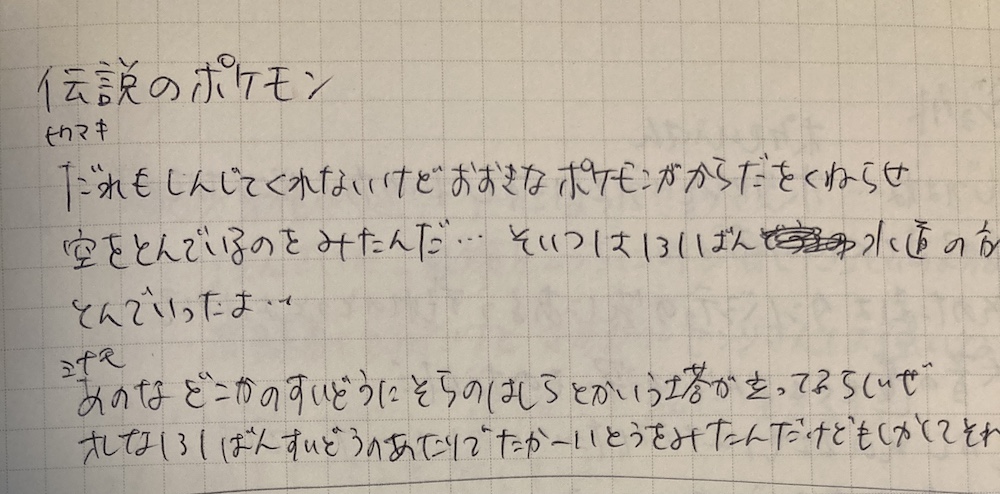 伝説のポケモン
トクサネ
だれもしんじてくれないけどおおきなポケモンがからだをくねらせ
空をとんでいるのをみたんだ… そいつは131ばん水道の方
とんでいったよ…
ミナモ
あのな どこかのすいどうにそらのはしらとかいう塔が立ってるらしいぜ
オレな131ばんすいどうのあたりでたかーいとうをみたんだけどもしかしてそれ